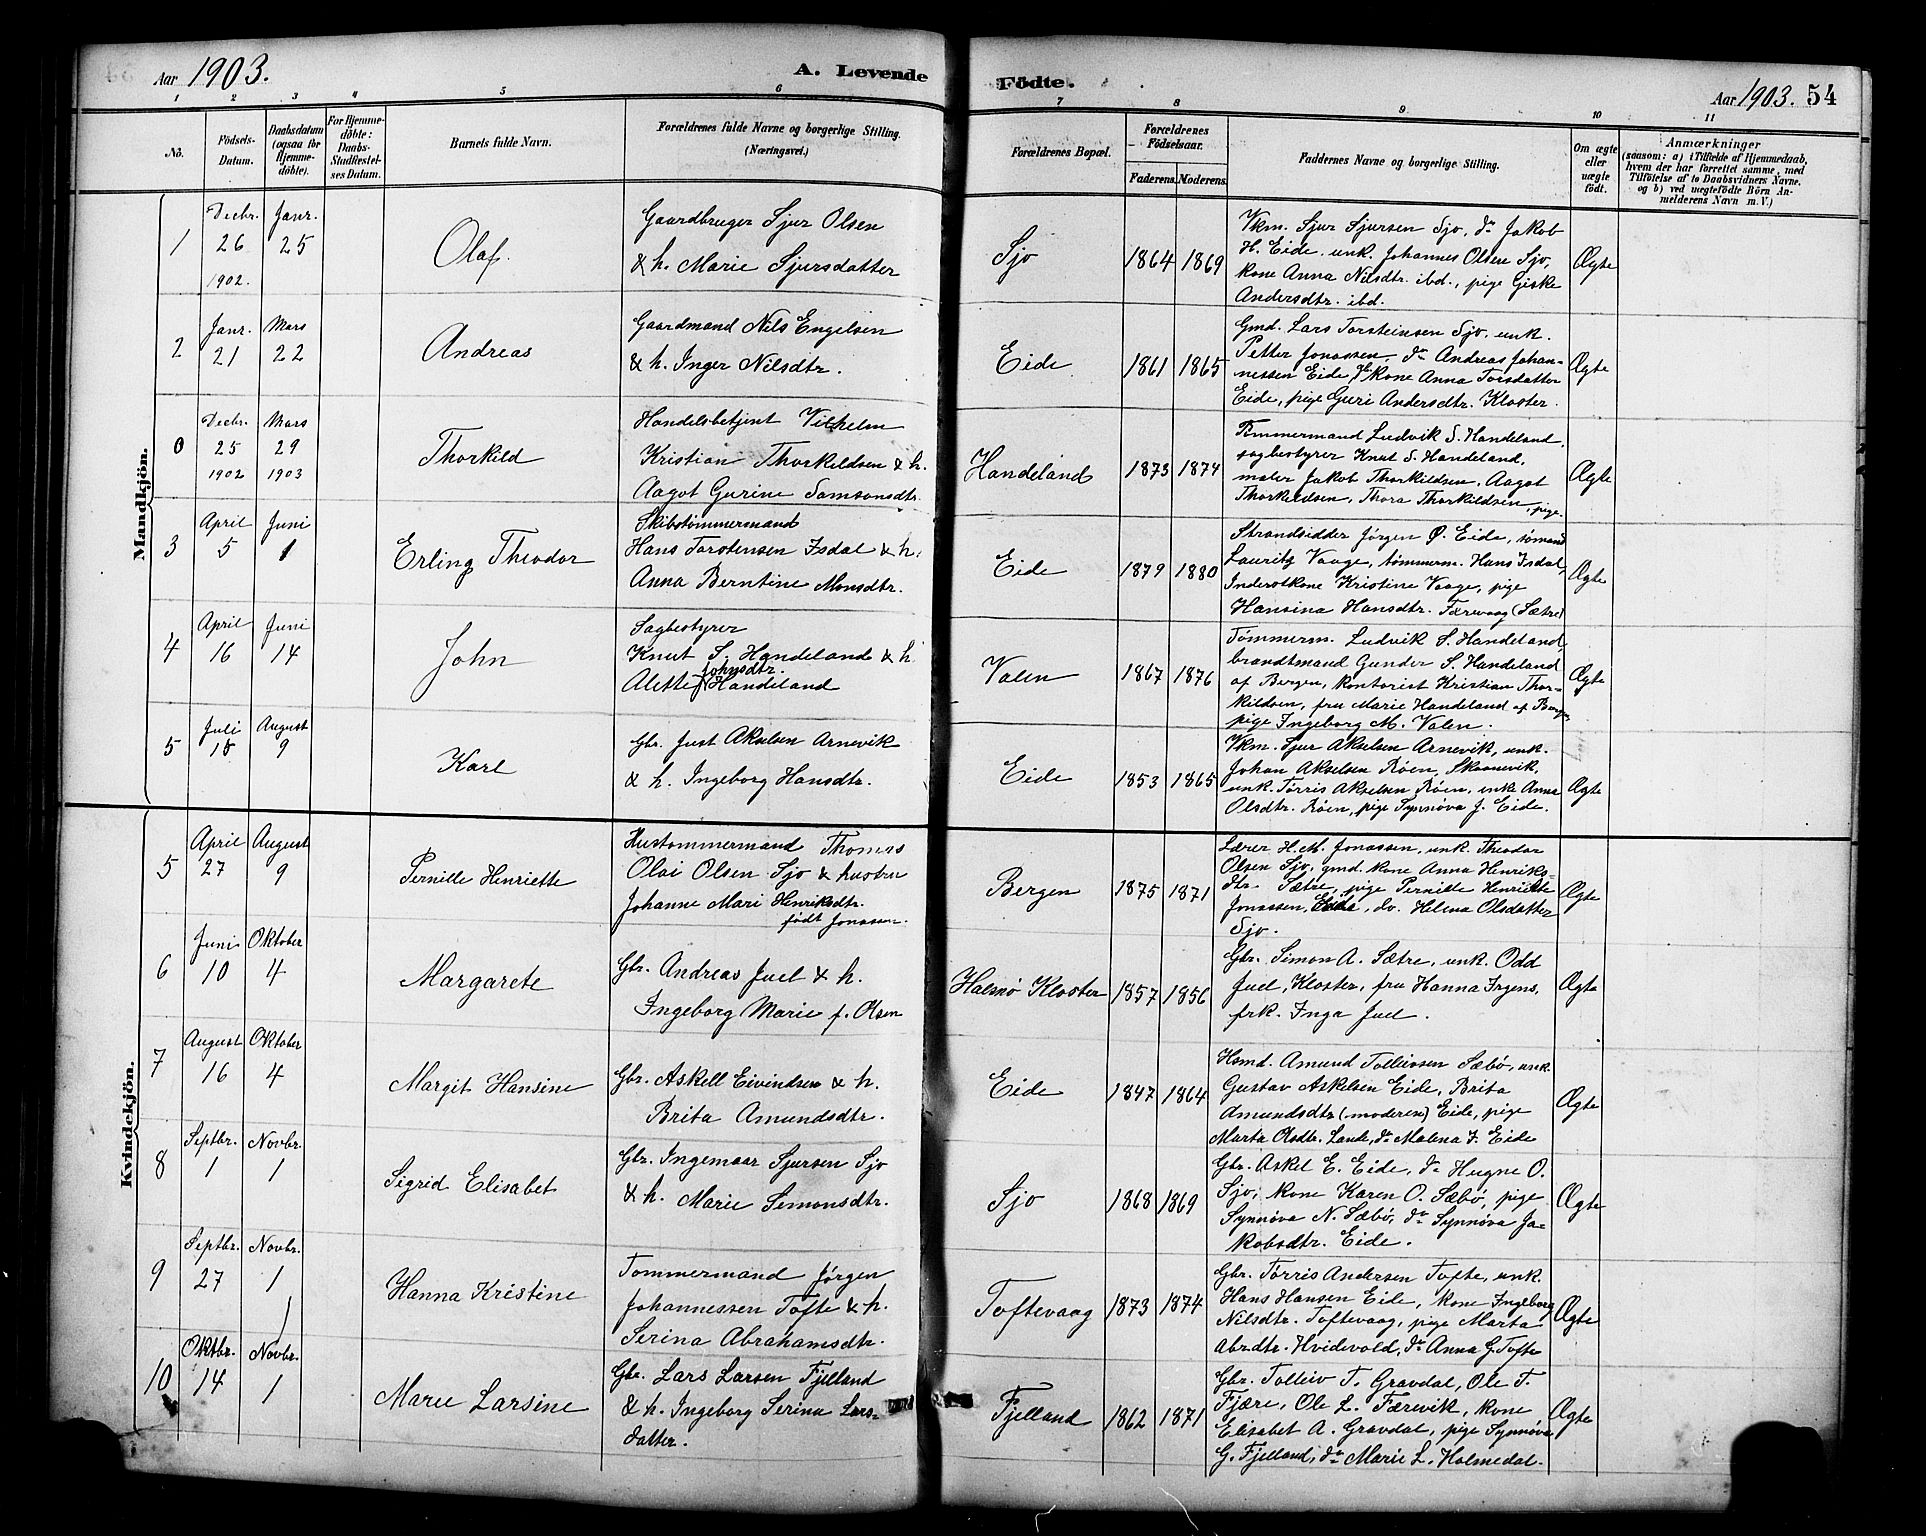 Aar 1903.
A. Levende
Födte.
Aar 1903. 54
1 2 3 4 5 6 7 8 9 10 11
No.
Födsels-
Datum.
Daabsdatum
(ogsaa for
Hjemme-
döbte).
For Hjemme-
döbte:
Daabs-
Stadfæstel-
ses Datum.
Barnets fulde Navn.
Forældrenes fulde Navne og borgerlige Stilling.
(Næringsvei.)
Forældrenes Bopæl.
Forældrenes
Födselsaar.
Faderens. Moderens.
Faddernes Navne og borgerlige Stilling.
Om ægte
eller
uægte
födt.
Anmærkninger
(saasom: a) i Tilfælde af Hjemmedaab,
hvem der har forrettet samme, med
Tilföielse af to Daabsvidners Navne,
og b) ved uægtefödte Börn An-
melderens Navn m. V.)
Mandkjön.
1
Decbr. 26 1902.
Janr. 25
Olaf.
Gaardbruger Sjur Olsen
& h. Marie Sjursdatter
Sjo
1864 1869
Ykm. Sjur Sjursen Sjo, do Jakob
H. Eide, unk. Johannes Olsen Sjo,
kone Anna Nilsdtr. ibd., pige Giske
Andersdtr. ibd.
Ægte
2
Janr. 21
Mars 22
Andreas
Gaardmand Nils Engelsen
& h. Inger Nilsdtr.
Eide
1861 1865
Gmd. Lars Torsteinsen Sjo, unk.
Petter Jonassen, do Andreas Johan-
nessen Eide, kone Anna Torsdatter
Eide, pige Guri Andersdtr. Kloster.
Ægte
0
Decbr. 25 1902
Mars 29 1903
Thorkild
Handelsbetjent Vilhelm
Kristian Thorkildsen & h.
Aagot Gurine Samsonsdtr.
Handeland
1873 1874
Tømmermand Ludvik S. Handeland,
sagbestyrer Knut S. Handeland,
maler Jakob Thorkildsen, Aagot
Thorkildsen, Thora Thorkildsen, pige.
Ægte
3
April 5
Juni 1
Erling Theodor
Skibstømmermand
Hans Torstensen Isdal & h.
Anna Berntine Monsdtr.
Eide
1879 1880
Strandsidder Jørgen Ø. Eide, sømand
Lauritz Vaage, tømmerm. Hans Isdal,
Inderstkone Kristine Vaage, pige
Hansina Hansdtr. Færevaag (Sætre)
Ægte
4
April 16
Juni 14
John
Sagbestyrer
Knut S. Handeland & h.
Johnsdtr.
Alette Handeland
Valen
1867 1876
Tømmerm. Ludvik S. Handeland,
brandtmand Gunder S. Handeland
af Bergen, kontorist Kristian Thor-
kildsen, fru Marie Handeland af Bergen
pige Ingeborg M. Valen.
Ægte
5
Juli 18
August 9
Karl
Gbr. Just Akselsen Arnevik
& h. Ingeborg Hansdtr.
Eide
1853 1865
Ykm. Sjur Akselsen Arnevik, unk.
Johan Akselsen Røen, Skaanevik,
unk. Tørris Akselsen Røen, enke Anna
Olsdtr. Røen, pige Synnøva J. Eide.
Ægte
Kvindekjön.
5
April 27
August 9
Pernille Henriette
Hustømmermand Thomas
Olai Olsen Sjo & hustru
Johanne Mari Henriksdtr.
født Jonassen.
Bergen
1875 1871
Lærer H. M. Jonassen, unk. Theodor
Olsen Sjo, gmd. kone Anna Henriks-
dtr. Sætre, pige Pernille Henriette
Jonassen, Eide, do. Helena Olsdatter
Sjo.
Ægte
6
Juni 10
Oktober 4
Margarete
Gbr. Andreas Juel & h.
Ingeborg Marie f. Olsen
Halsnø Kloster
1857 1856
Gbr. Simon A. Sætre, unk. Odd
Juel, Kloster, fru Hanna Irgens,
frk. Inga Juel.
Ægte
7
August 16
Oktober 4
Margit Hansine
Gbr. Askell Eivindsen & h.
Brita Amundsdtr.
Eide
1847 1864
Hsmd. Amund Tolleivsen Sæbø, unk.
Gustav Askelsen Eide, Brita
Amundsdtr (moderen) Eide, pige
Marta Olsdtr. Lande, do Malena J. Eide
Ægte
8
Septbr. 1
Novbr. 1
Sigrid Elisabet
Gbr. Ingemaar Sjursen Sjo
& h. Marie Simonsdtr.
Sjo
1868 1869
Gbr. Askel E. Eide, do Hugne O.
Sjo, kone Karen O. Sæbø, pige
Synnøva N. Sæbø, do Synnøva Ja-
kobsdtr. Eide.
Ægte
9
Septbr. 27
Novbr. 1
Hanna Kristine
Tømmermand Jørgen
Johannessen Tofte & h.
Serina Abrahamsdtr.
Toftevaag
1873 1874
Gbr. Tørris Andersen Tofte, unk.
Hans Hansen Eide, kone Ingeborg
Nilsdtr. Toftevaag, pige Marta
Abrdtr. Hvidevold, do Anna G. Tofte
Ægte
10
Oktbr. 14
Novbr. 1
Marie Larsine
Gbr. Lars Larsen Fjelland
& h. Ingeborg Serina Lars-
datter.
Fjelland
1862 1871
Gbr. Tolleiv T. Gravdal, Ole T.
Fjære, Ole L. Færevik, kone
Elisabet A. Gravdal, pige Synnøva
G. Fjelland, do Marie L. Holmedal.
Ægte